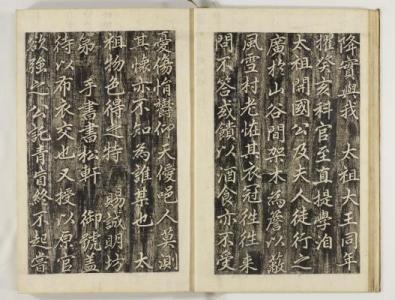 降實與我 太祖大王同年
擢癸亥科官至直提學洎
太祖開國公及夫人徒行之
廣於山谷間架木為簷以蔽
風雪村老恠其衣冠往往來
問不答或饋以酒食亦不受
憂傷悄欝仰天優唈人莫測
其懐亦不知為誰某也 太
祖物色得之特 賜誠明坊
第 手書書松軒 御號盖
待以布衣交也又授以原官
欲強之公託青盲終不起嘗